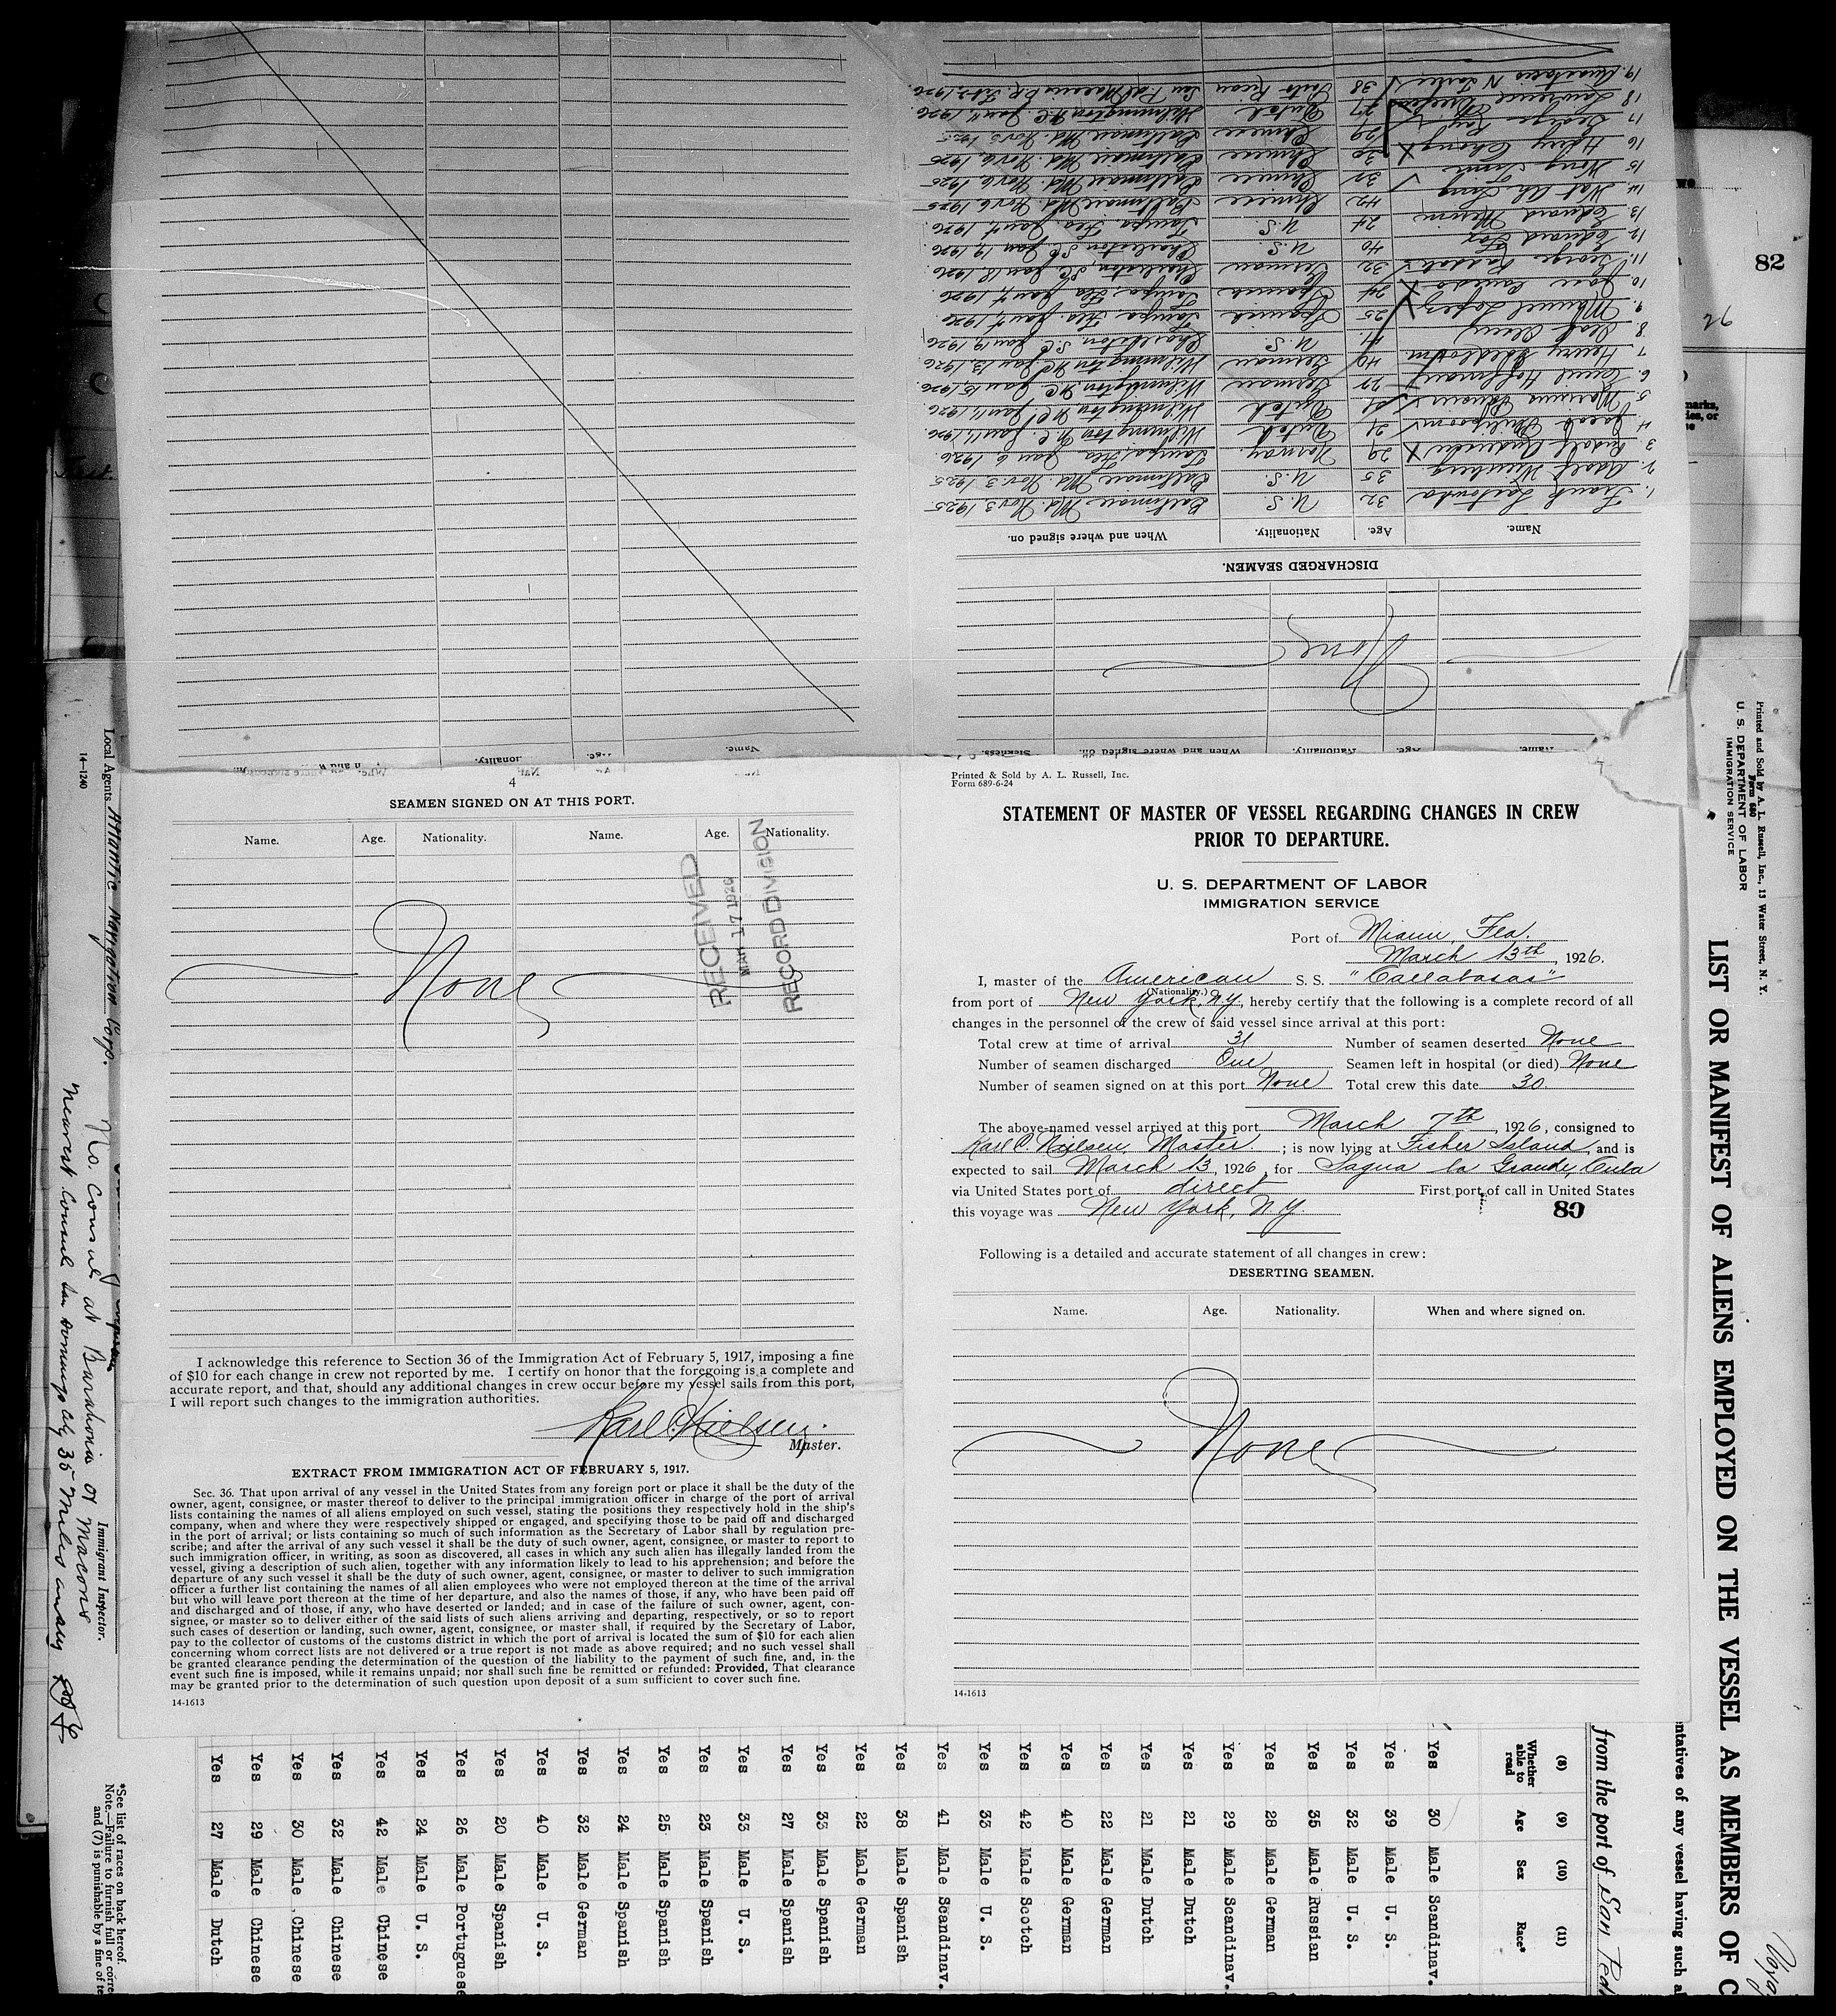 4
SEAMEN SIGNED ON AT THIS PORT.
Name. Age. Nationality. Name. Age. Nationality.
None
RECEIVED
MAR 17 1926
RECORD DIVISION
I acknowledge this reference to Section 36 of the Immigration Act of February 5, 1917, imposing a fine
of $10 for each change in crew not reported by me. I certify on honor that the foregoing is a complete and
accurate report, and that, should any additional changes in crew occur before my vessel sails from this port,
I will report such changes to the immigration authorities.
Karl C. Nielsen
Master.
EXTRACT FROM IMMIGRATION ACT OF FEBRUARY 5, 1917.
Sec. 36. That upon arrival of any vessel in the United States from any foreign port or place it shall be the duty of the
owner, agent, consignee, or master thereof to deliver to the principal immigration officer in charge of the port of arrival
lists containing the names of all aliens employed on such vessel, stating the positions they respectively hold in the ship's
company, when and where they were respectively shipped or engaged, and specifying those to be paid off and discharged
in the port of arrival; or lists containing so much of such information as the Secretary of Labor shall by regulation pre-
scribe; and after the arrival of any such vessel it shall be the duty of such owner, agent, consignee, or master to report to
such immigration officer, in writing, as soon as discovered, all cases in which any such alien has illegally landed from the
vessel, giving a description of such alien, together with any information likely to lead to his apprehension; and before the
departure of any such vessel it shall be the duty of such owner, agent, consignee, or master to deliver to such immigration
officer a further list containing the names of all alien employees who were not employed thereon at the time of the arrival
but who will leave port thereon at the time of her departure, and also the names of those, if any, who have been paid off
and discharged and of those, if any, who have deserted or landed; and in case of the failure of such owner, agent, con-
signee, or master so to deliver either of the said lists of such aliens arriving and departing, respectively, or so to report
such cases of desertion or landing, such owner, agent, consignee, or master shall, if required by the Secretary of Labor,
pay to the collector of customs of the customs district in which the port of arrival is located the sum of $10 for each alien
concerning whom correct lists are not delivered or a true report is not made as above required; and no such vessel shall
be granted clearance pending the determination of the question of the liability to the payment of such fine, and, in the
event such fine is imposed, while it remains unpaid; nor shall such fine be remitted or refunded: Provided, That clearance
may be granted prior to the determination of such question upon deposit of a sum sufficient to cover such fine.
14-1613
Printed & Sold by A. L. Russell, Inc.
Form 689-6-24
STATEMENT OF MASTER OF VESSEL REGARDING CHANGES IN CREW
PRIOR TO DEPARTURE.
U. S. DEPARTMENT OF LABOR
IMMIGRATION SERVICE
Port of Miami, Fla.
March 13th, 1926.
I, master of the American S. S. "Callabasas"
(Nationality.)
from port of New York, N.Y., hereby certify that the following is a complete record of all
changes in the personnel of the crew of said vessel since arrival at this port:
Total crew at time of arrival 31 Number of seamen deserted None
Number of seamen discharged One Seamen left in hospital (or died) None
Number of seamen signed on at this port None Total crew this date 30
The above-named vessel arrived at this port March 7th, 1926, consigned to
Karl C. Nielsen, Master; is now lying at Fisher Island, and is
expected to sail March 13, 1926, for Sagua la Grande, Cuba
via United States port of direct First port of call in United States
this voyage was New York, N.Y. 80
Following is a detailed and accurate statement of all changes in crew:
DESERTING SEAMEN.
Name. Age. Nationality. When and where signed on.
None
14-1613
DISCHARGED SEAMEN.
Name. Age. Nationality. When and where signed on.
1. Frank 32 U.S. Baltimore Md. Nov 3 1925
2. Adolf 35 U.S. Baltimore Md. Nov. 3 1925
3 Rudolf 29 Norway Tampa, Fla Jan 6 1926
4. Jacob 21 Dutch Wilmington N.C. Jan 11, 1926
5 Marinus 21 Dutch Wilmington N.C. Jan 11, 1926
6. Hoffmann 22 German Wilmington N.C. Jan 15, 1926
7. Henry 40 German Wilmington N.C. Jan 13, 1926
8 41 U.S. Charleston S.C. Jan 19, 1926
9. Manuel Lopez 25 Spanish Tampa, Fla. Jan 4, 1926
10 Jose 24 Spanish Tampa, Fla Jan 4, 1926
11. George 32 German Charleston, S.C. Jan 18, 1926
12. Edward Fox 40 U.S. Charleston S.C. Jan 19, 1926
13 Edward 24 U.S. Tampa, Fla. Jan 4, 1926
14. Wat Ah Sing 42 Chinese Baltimore Md. Nov 6, 1925
15 Wong 32 Chinese Baltimore Md. Nov 6, 1925
16 Chong 30 Chinese Baltimore Md. Nov 6, 1925
17 George 29 Chinese Baltimore Md. Nov 5, 1925
18 Lawrence 27 Dutch Wilmington N.C. Jan 11, 1926
19. 38 Porto Rican San P. de Macoris D.R. Feb 2, 1926
None
Name. Age. Nationality. When and where signed off. Sickness.
82
Local Agents Atlantic Navigation Corp.
14-1240
No Consul at Barahona or Macoris
Nearest Consul San Domingo City 35 miles away
Immigrant Inspector.
*See list of races on back hereof.
Note.—Failure to furnish full or corre
and (7) is punishable by a fine of te
Printed and Sold by A. L. Russell, Inc., 13 Water Street, N. Y.
Form 680
U. S. DEPARTMENT OF LABOR
IMMIGRATION SERVICE
LIST OR MANIFEST OF ALIENS EMPLOYED ON THE VESSEL AS MEMBERS OF C
ntatives of any vessel having such al
from the port of San Ped
(8) (9) (10) (11)
Whether able to read Age Sex Race*
Yes 30 Male Scandinav.
Yes 39 Male U. S.
Yes 32 Male U. S.
Yes 35 Male Russian
Yes 28 Male German
Yes 29 Male Scandinav.
Yes 21 Male Dutch
Yes 21 Male Dutch
Yes 22 Male German
Yes 40 Male German
Yes 42 Male Scotch
Yes 33 Male U. S.
Yes 41 Male Scandinav.
Yes 38 Male Spanish
Yes 22 Male German
Yes 33 Male Spanish
Yes 27 Male Spanish
Yes 33 Male U. S.
Yes 23 Male Spanish
Yes 25 Male Spanish
Yes 24 Male Spanish
Yes 32 Male German
Yes 40 Male U. S.
Yes 20 Male Spanish
Yes 26 Male Portuguese
Yes 24 Male U. S.
Yes 42 Male Chinese
Yes 32 Male Chinese
Yes 30 Male Chinese
Yes 29 Male Chinese
Yes 27 Male Dutch